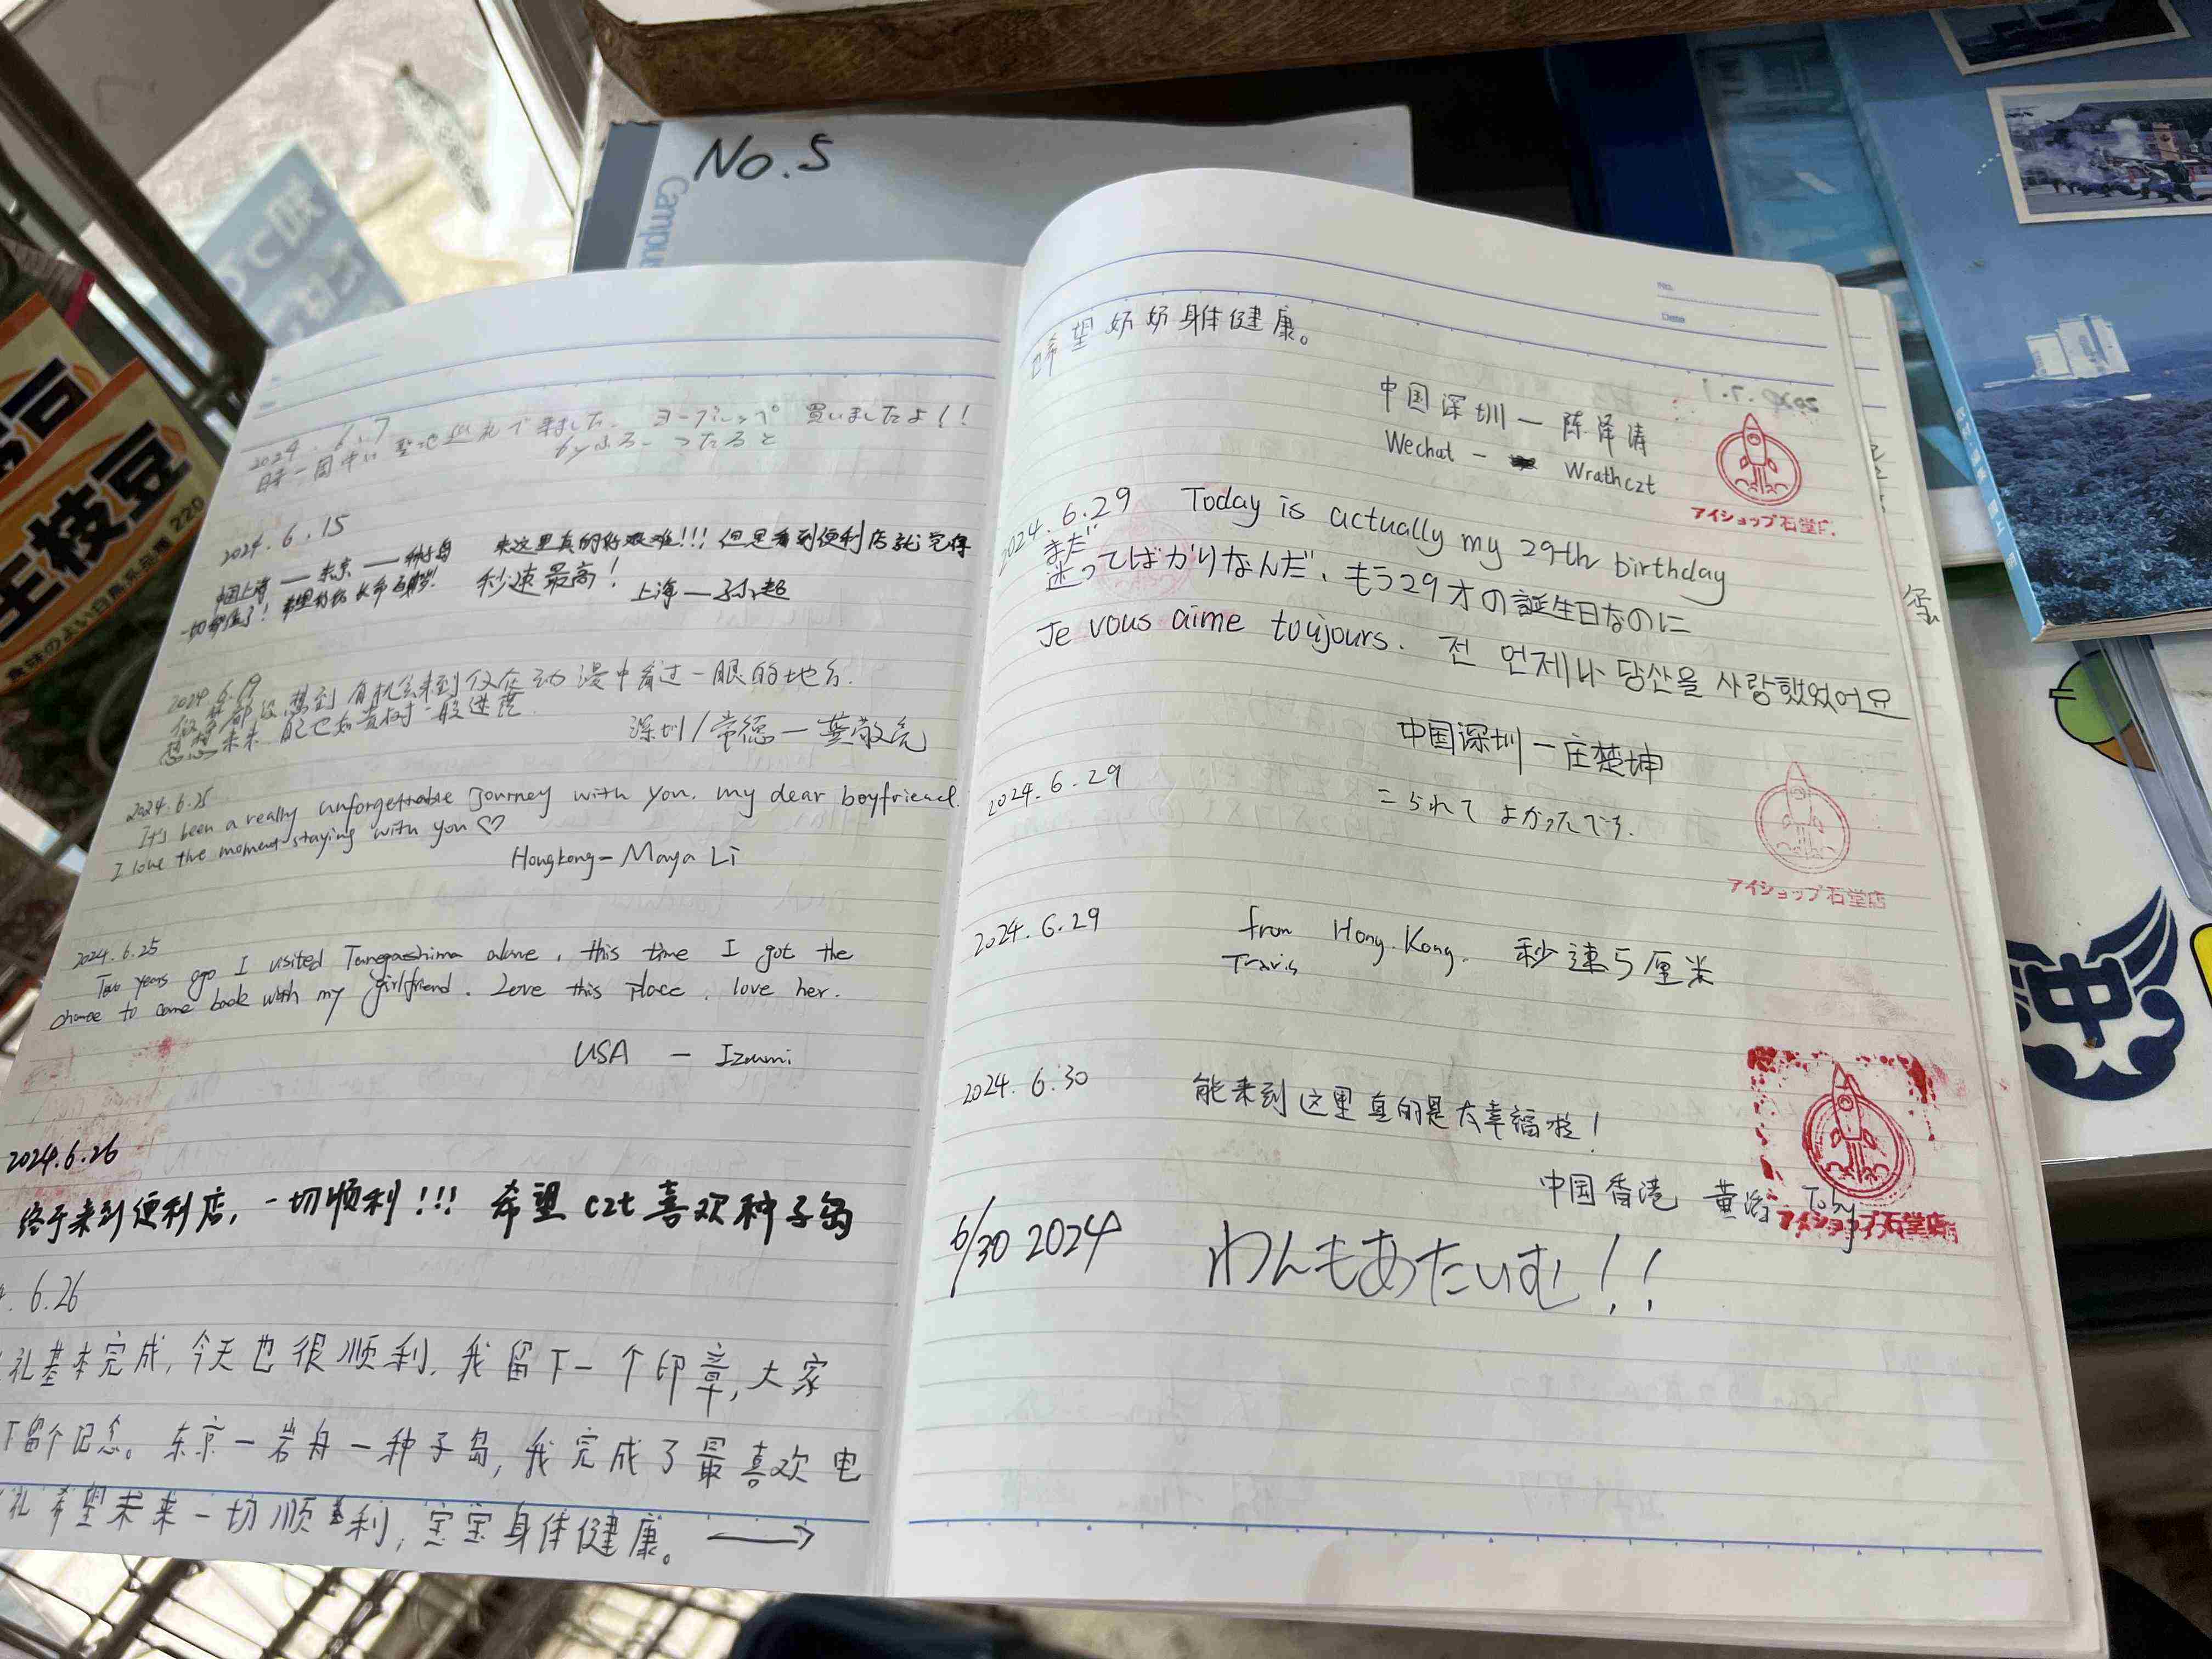 No.5
Campus
2024.6.7
聖地巡礼で来ました。ヨーグルッペ 買いましたよ!!
2024.6.15
中国上海 — 东京 — 种子岛
来这里真的好艰难!!! 但是看到便利店就觉得
秒速最高!
上海 — 孙超
2024.6.19
做梦都没想到有机会来到仅在动漫中看过一眼的地方.
深圳/常德 —
2024.6.25
It's been a really unforgettable journey with you, my dear boyfriend.
I love the moment staying with you ♡
Hongkong - Maya Li
2024.6.25
Two years ago I visited Tanegashima alone, this time I got the
chance to come back with my girlfriend. Love this place, love her.
USA - Izumi
2024.6.26
终于来到便利店, 一切顺利!!! 希望 czt 喜欢种子岛
. 6.26
礼基本完成, 今天也很顺利, 我留下一个印章, 大家
下留个记念。东京 - 岩舟 - 种子岛, 我完成了最喜欢电
礼 希望未来一切顺利, 宝宝身体健康。 →
也希望奶奶身体健康。
中国深圳 — 陈泽涛
Wechat - Wrathczt
アイショップ石堂
2024.6.29 Today is actually my 29th birthday
まだ
迷ってばかりなんだ、もう29才の誕生日なのに
Je vous aime toujours. 전 언제나 당산을 사랑했었어요
中国深圳 — 庄楚坤
2024.6.29
こられて よかったです.
アイショップ石堂店
2024.6.29 from Hong Kong. 秒速5厘米
Travis
2024.6.30 能来到这里真的是太幸福啦!
中国香港 黄 Toby
アイショップ石堂店
6/30 2024 わんもあたいむ!!
王枝豆
220
中